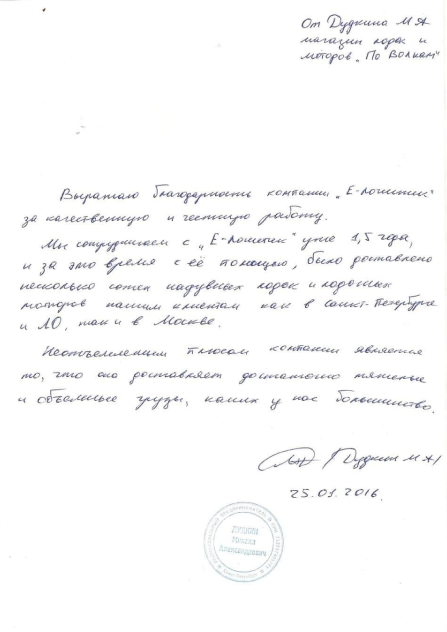 От Дудкина М А
магазин лодок и
моторов „По Волнам"
Выражаю благодарность компании „Е-Логистик"
за качественную и честную работу.
Мы сотрудничаем с „Е-Логистик" уже 1,5 года,
и за это время с её помощью, было доставлено
несколько сотен надувных лодок и лодочных
моторов нашим клиентам как в Санкт-Петербурге
и ЛО, так и в Москве.
Неотъемлемым плюсом компании является
то, что она доставляет достаточно тяжелые
и объемные грузы, каких у нас большинство.
/Дудкин М А/
25.01.2016.
ДУДКИН
Михаил
Александрович